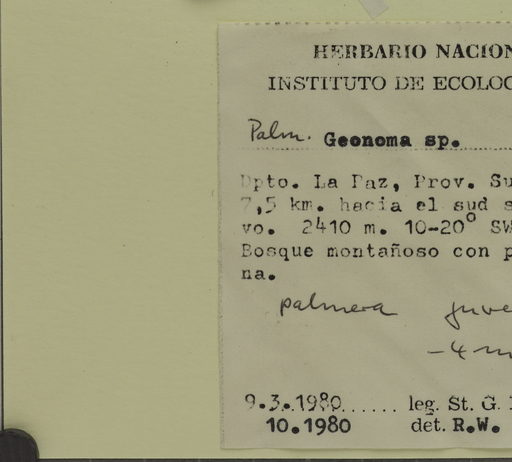 HERBARIO NACION
INSTITUTO DE ECOLOG
Palm. Geonoma sp.
Dpto. La Paz, Prov. Su
7,5 km. hacia el sud s
vo. 2410 m. 10-20° SW
Bosque montañoso con p
na.
palmera juve
-4 m
9.3.1980...... leg. St. G.
10.1980 det. R.W.